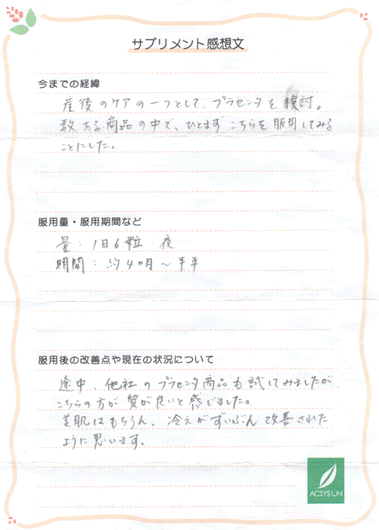 サプリメント感想文
今までの経緯
産後のケアの一つとして、プラセンタを検討。
数ある商品の中で、ひとまずこちらを服用してみる
ことにした。
服用量・服用期間など
量：1日6粒 夜
期間：約4ヶ月～半年
服用後の改善点や現在の状況について
途中、他社のプラセンタ商品も試してみましたが、
こちらの方が質が良いと感じました。
美肌はもちろん、冷えがずいぶん改善された
ように思います。
ACSYSUN